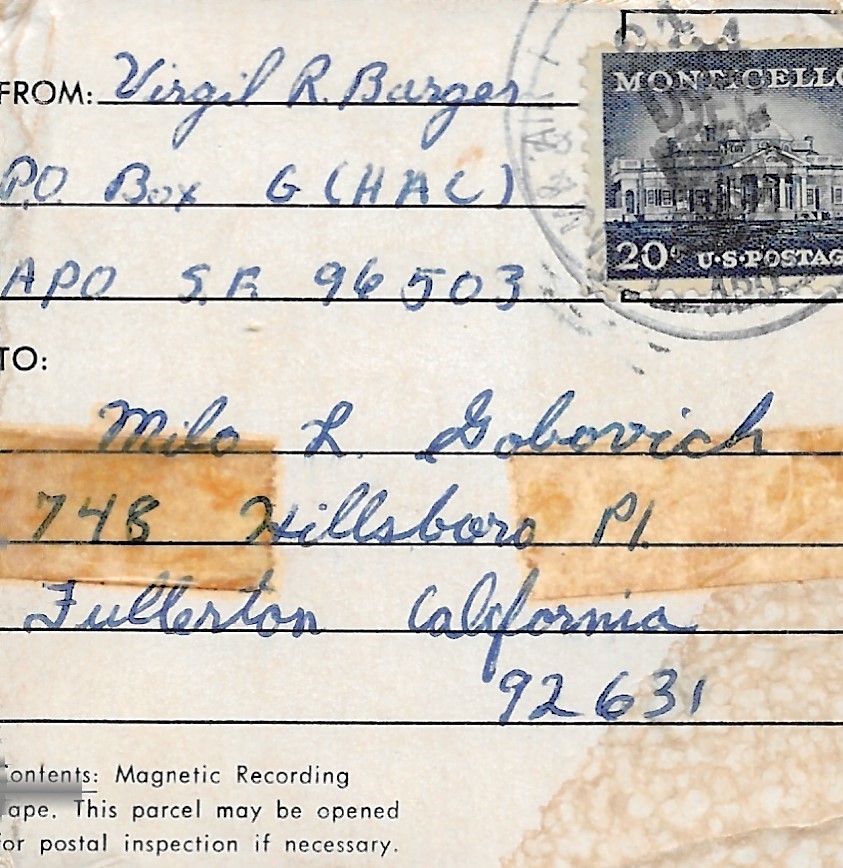 FROM: Virgil R. Barger
P.O. Box G (HAC)
APO S.F. 96503
MONTICELLO
20¢ U.S. POSTAG
TO:
Milo L. Gobovich
748 Hillsboro Pl.
Fullerton California
92631
Contents: Magnetic Recording
Tape. This parcel may be opened
for postal inspection if necessary.